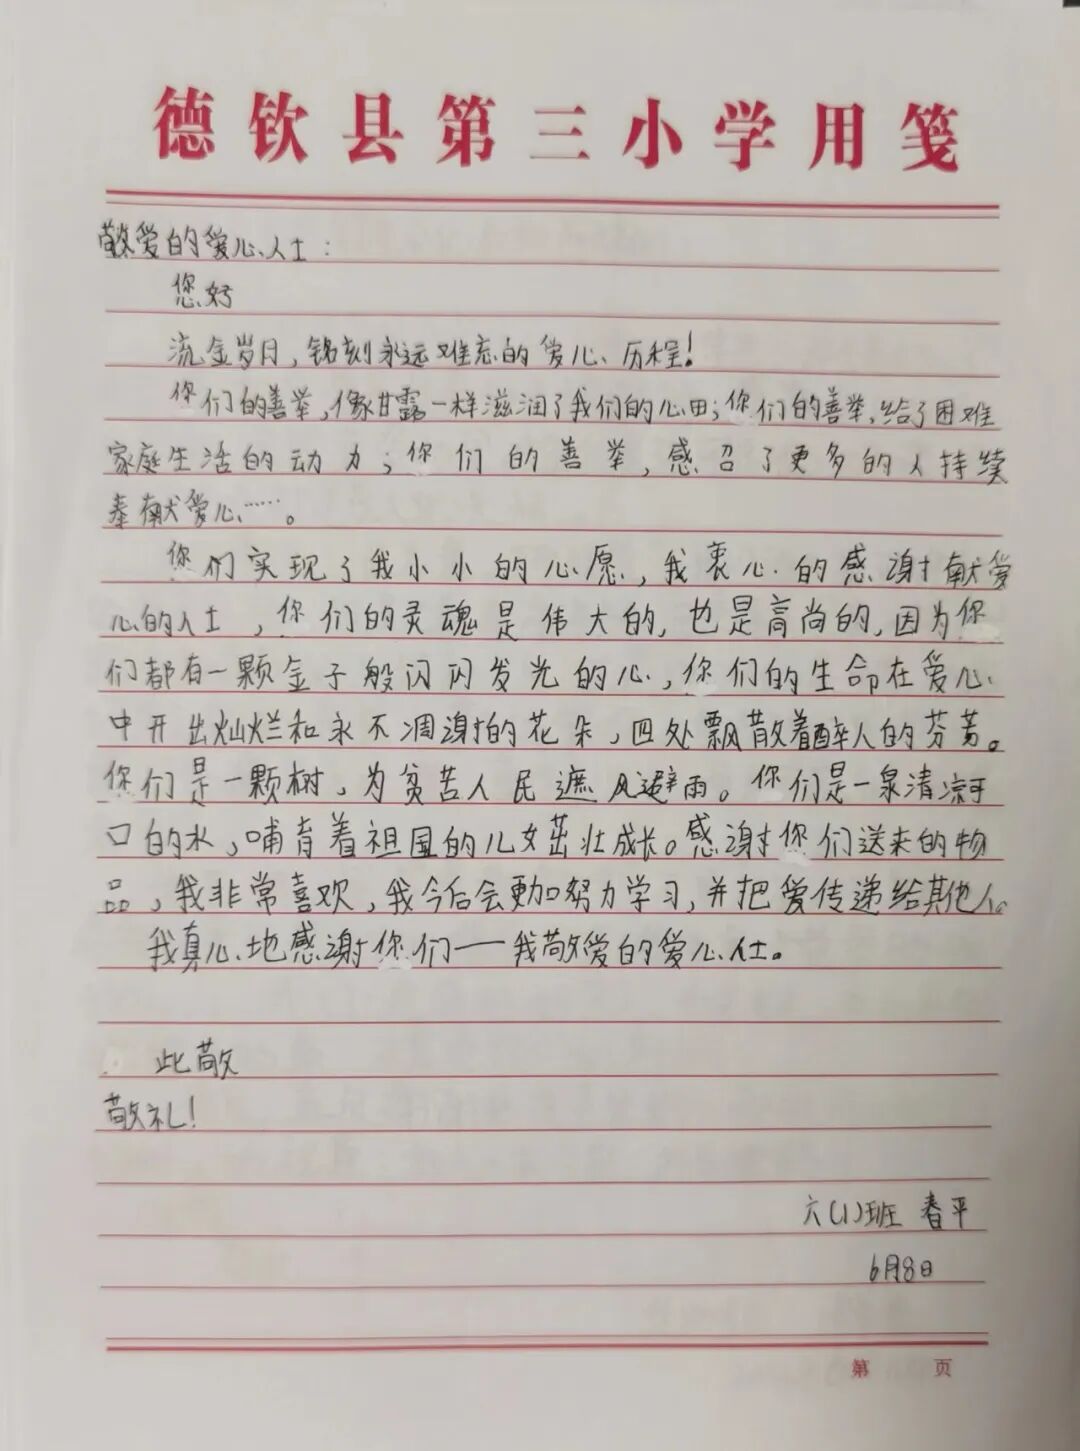 德钦县第三小学用笺
敬爱的爱心人士：
您好
流金岁月，铭刻永远难忘的爱心历程！
你们的善举，像甘露一样滋润了我们的心田；你们的善举，给了困难
家庭生活的动力；你们的善举，感召了更多的人持续
奉献爱心……。
你们实现了我小小的心愿，我衷心的感谢献爱
心的人士，你们的灵魂是伟大的，也是高尚的，因为你
们都有一颗金子般闪闪发光的心，你们的生命在爱心
中开出灿烂和永不凋谢的花朵，四处飘散着醉人的芬芳。
你们是一颗树，为贫苦人民遮风避雨。你们是一泉清凉可
口的水，哺育着祖国的儿女茁壮成长。感谢你们送来的物
品，我非常喜欢，我今后会更加努力学习，并把爱传递给其他人。
我真心地感谢你们——我敬爱的爱心人士。
此敬
敬礼！
六(1)班 春平
6月8日
第 页